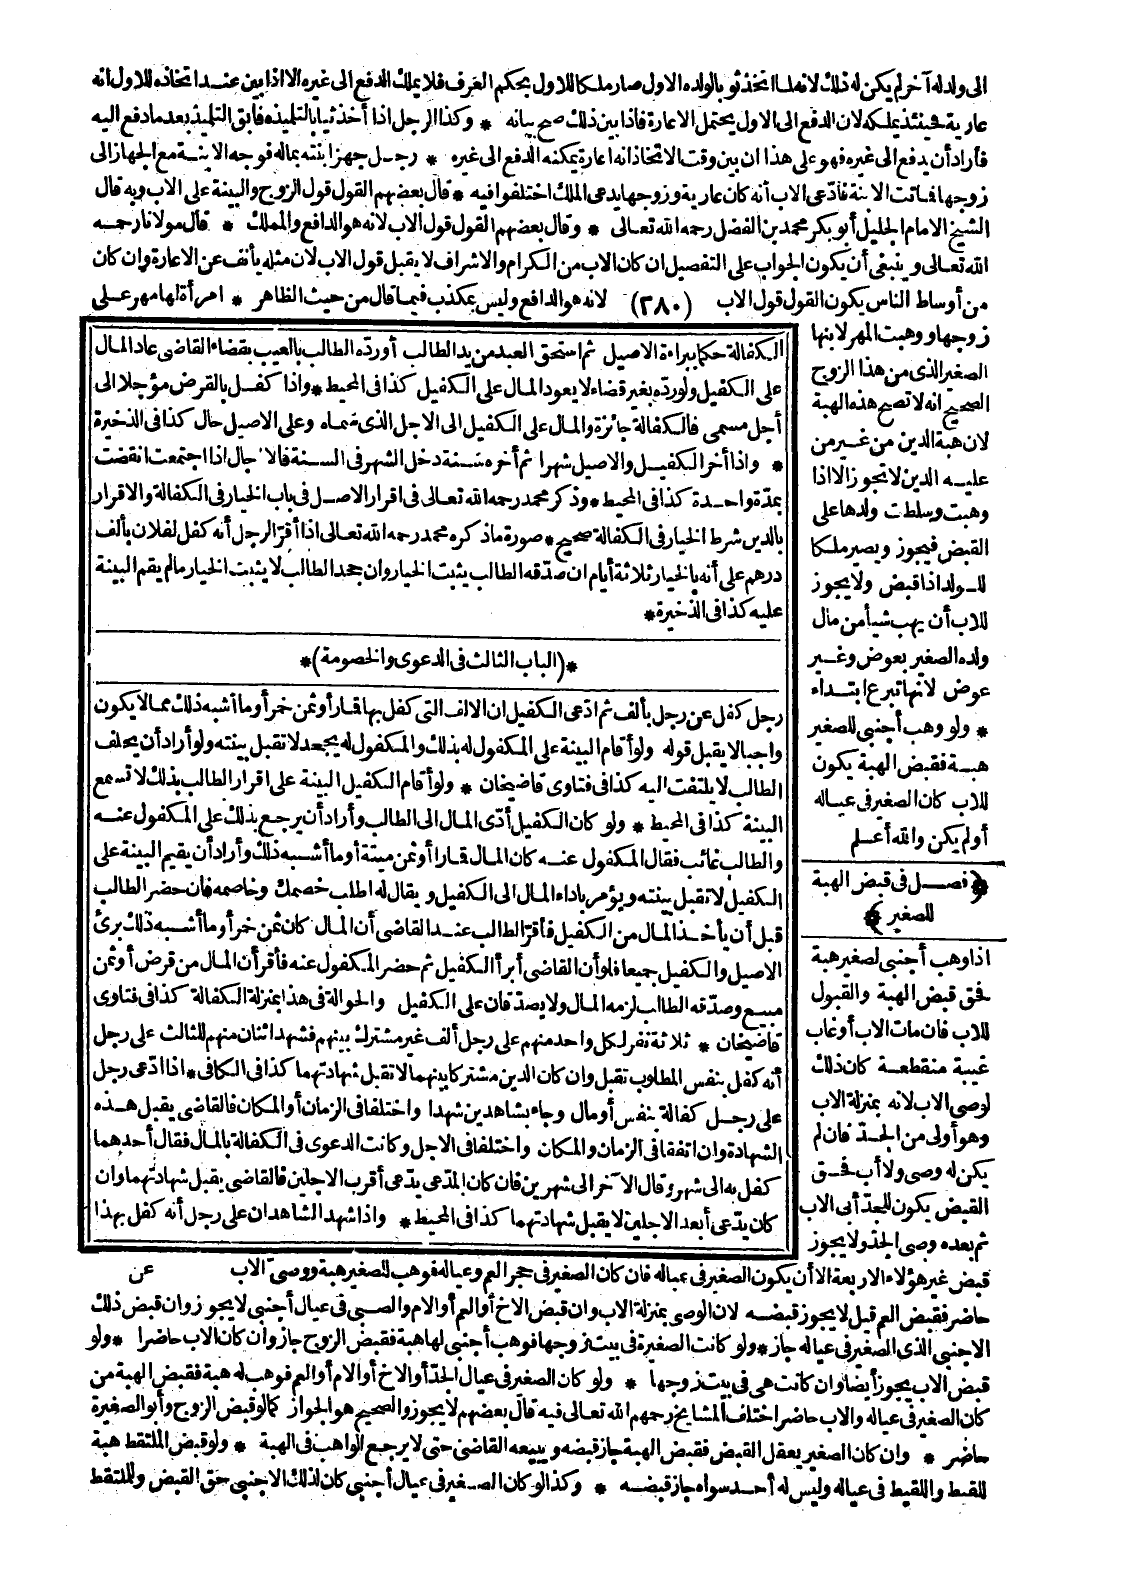 الى ولد له آخر لم يكن له ذلك لانه لما اتخذ ثوبا لولده الاول صار ملكا للاول بحكم العرف فلا يملك الدفع الى غيره الا اذا بين عند اتخاذه للاول انه
عارية فحينئذ يملكه لان الدفع الى الاول يحتمل الاعارة فاذا بين ذلك صح بيانه * وكذا الرجل اذا أخذ ثيابا لتلميذه فأبق التلميذ بعد ما دفع اليه
فأراد أن يدفع الى غيره فهو على هذا ان بين وقت الاتخاذ انه اعارة يمكنه الدفع الى غيره * رجل جهز ابنته بماله فوجه الابنة مع الجهاز الى
زوجها فماتت الابنة فادّعى الاب أنه كان عارية وزوجها يدعى الملك اختلفوا فيه * قال بعضهم القول قول الزوج والبينة على الاب وبه قال
الشيخ الامام الجليل أبو بكر محمد بن الفضل رحمه الله تعالى * وقال بعضهم القول قول الاب لانه هو الدافع والمملك * قال مولانا رحمه
الله تعالى وينبغى أن يكون الجواب على التفصيل ان كان الاب من الكرام والاشراف لا يقبل قول الاب لان مثله يأنف عن الاعارة وان كان
من أوساط الناس يكون القول قول الاب (٢٨٠) لانه هو الدافع وليس بمكذب فيما قال من حيث الظاهر * امرأة لها مهر على
زوجها ووهبت المهر لابنها
الصغير الذى من هذا الزوج
الصحيح انه لا تصح هذه الهبة
لان هبة الدين من غير من
عليه الدين لا يجوز الا اذا
وهبت وسلطت ولدها على
القبض فيجوز ويصير ملكا
للولد اذا قبض ولا يجوز
للاب أن يهب شيأ من مال
ولده الصغير بعوض وغير
عوض لانها تبرع ابتداء
* ولو وهب أجنبى للصغير
هبة فقبض الهبة يكون
للاب كان الصغير فى عياله
أو لم يكن والله أعلم
﴿ فصل فى قبض الهبة
للصغير ﴾
اذا وهب أجنبى لصغير هبة
فحق قبض الهبة والقبول
للاب فان مات الاب أو غاب
غيبة منقطعة كان ذلك
لوصى الاب لانه بمنزلة الاب
وهو أولى من الجدّ فان لم
يكن له وصى ولا أب فحق
القبض يكون للجد أبى الاب
ثم بعده وصى الجد ولا يجوز
قبض غير هؤلاء الاربعة الا أن يكون الصغير فى عياله فان كان الصغير فى حجر العم وعياله فوهب للصغير هبة ووصىّ الاب
حاضر فقبض العم قيل لا يجوز قبضه لان الوصى بمنزلة الاب وان قبض الاخ أو العم أو الام والصبى فى عيال أجنبى لا يجوز وان قبض ذلك
الاجنبى الذى الصغير فى عياله جاز * ولو كانت الصغيرة فى بيت زوجها فوهب أجنبى لها هبة فقبض الزوج جاز وان كان الاب حاضرا * ولو
قبض الاب يجوز أيضا وان كانت هى فى بيت زوجها * ولو كان الصغير فى عيال الجدّ أو الاخ أو الام أو العم فوهب له هبة فقبض الهبة من
كان الصغير فى عياله والاب حاضر اختلف المشايخ رحمهم الله تعالى فيه قال بعضهم لا يجوز والصحيح هو الجواز كما لو قبض الزوج وأبو الصغيرة
حاضر * وان كان الصغير يعقل القبض فقبض الهبة جاز قبضه ويبيعه القاضى حتى لا يرجع الواهب فى الهبة * ولو قبض الملتقط هبة
للقيط واللقيط فى عياله وليس له أحد سواه جاز قبضه * وكذا لو كان الصغير فى عيال أجنبى كان لذلك الاجنبى حق القبض وللملتقط
الكفالة حكما ببراءة الاصيل ثم استحق العبد من يد الطالب أو ردّه الطالب بالعيب بقضاء القاضى عاد المال
على الكفيل ولو ردّه بغير قضاء لا يعود المال على الكفيل كذا فى المحيط * واذا كفل بالقرض مؤجلا الى
أجل مسمى فالكفالة جائزة والمال على الكفيل الى الاجل الذى سماه وعلى الاصيل حال كذا فى الذخيرة
* واذا أخر الكفيل والاصيل شهرا ثم أخره سنة دخل الشهر فى السنة فالآجال اذا اجتمعت انقضت
بمدّة واحدة كذا فى المحيط * وذكر محمد رحمه الله تعالى فى اقرار الاصل فى باب الخيار فى الكفالة والاقرار
بالدين شرط الخيار فى الكفالة صحيح * صورة ما ذكره محمد رحمه الله تعالى اذا أقرّ الرجل أنه كفل لفلان بألف
درهم على أنه بالخيار ثلاثة أيام ان صدّقه الطالب يثبت الخيار وان جحد الطالب لا يثبت الخيار ما لم يقم البينة
عليه كذا فى الذخيرة *
* (الباب الثالث فى الدعوى والخصومة) *
رجل كفل عن رجل بألف ثم ادّعى الكفيل ان الالف التى كفل بها قمار أو ثمن خمر أو ما أشبه ذلك مما لا يكون
واجبا لا يقبل قوله ولو أقام البينة على المكفول له بذلك والمكفول له يجحد لا تقبل بينته ولو أراد أن يحلف
الطالب لا يلتفت اليه كذا فى فتاوى قاضيخان * ولو أقام الكفيل البينة على اقرار الطالب بذلك لا تسمع
البينة كذا فى المحيط * ولو كان الكفيل أدّى المال الى الطالب وأراد أن يرجع بذلك على المكفول عنه
والطالب غائب فقال المكفول عنه كان المال قمارا أو ثمن ميتة أو ما أشبه ذلك وأراد أن يقيم البينة على
الكفيل لا تقبل بينته ويؤمر باداء المال الى الكفيل ويقال له اطلب خصمك وخاصمه فان حضر الطالب
قبل أن يأخذ المال من الكفيل فأقرّ الطالب عند القاضى أن المال كان ثمن خمر أو ما أشبه ذلك برئ
الاصيل والكفيل جميعا فلو أن القاضى أبرأ الكفيل ثم حضر المكفول عنه فأقر أن المال من قرض أو ثمن
مبيع وصدّقه الطالب لزمه المال ولا يصدّقان على الكفيل والحوالة فى هذا بمنزلة الكفالة كذا فى فتاوى
قاضيخان * ثلاثة نفر لكل واحد منهم على رجل ألف غير مشترك بينهم فشهد اثنان منهم للثالث على رجل
أنه كفل بنفس المطلوب تقبل وان كان الدين مشتركا بينهما لا تقبل شهادتهما كذا فى الكافى * اذا ادّعى رجل
على رجل كفالة بنفس أو مال وجاء بشاهدين شهدا واختلفا فى الزمان أو المكان فالقاضى يقبل هذه
الشهادة وان اتفقا فى الزمان والمكان واختلفا فى الاجل وكانت الدعوى فى الكفالة بالمال فقال أحدهما
كفل به الى شهر وقال الآخر الى شهرين فان كان المدّعى يدّعى أقرب الاجلين فالقاضى يقبل شهادتهما وان
كان يدّعى أبعد الاجلين لا يقبل شهادتهما كذا فى المحيط * واذا شهد الشاهدان على رجل أنه كفل بهذا
عن